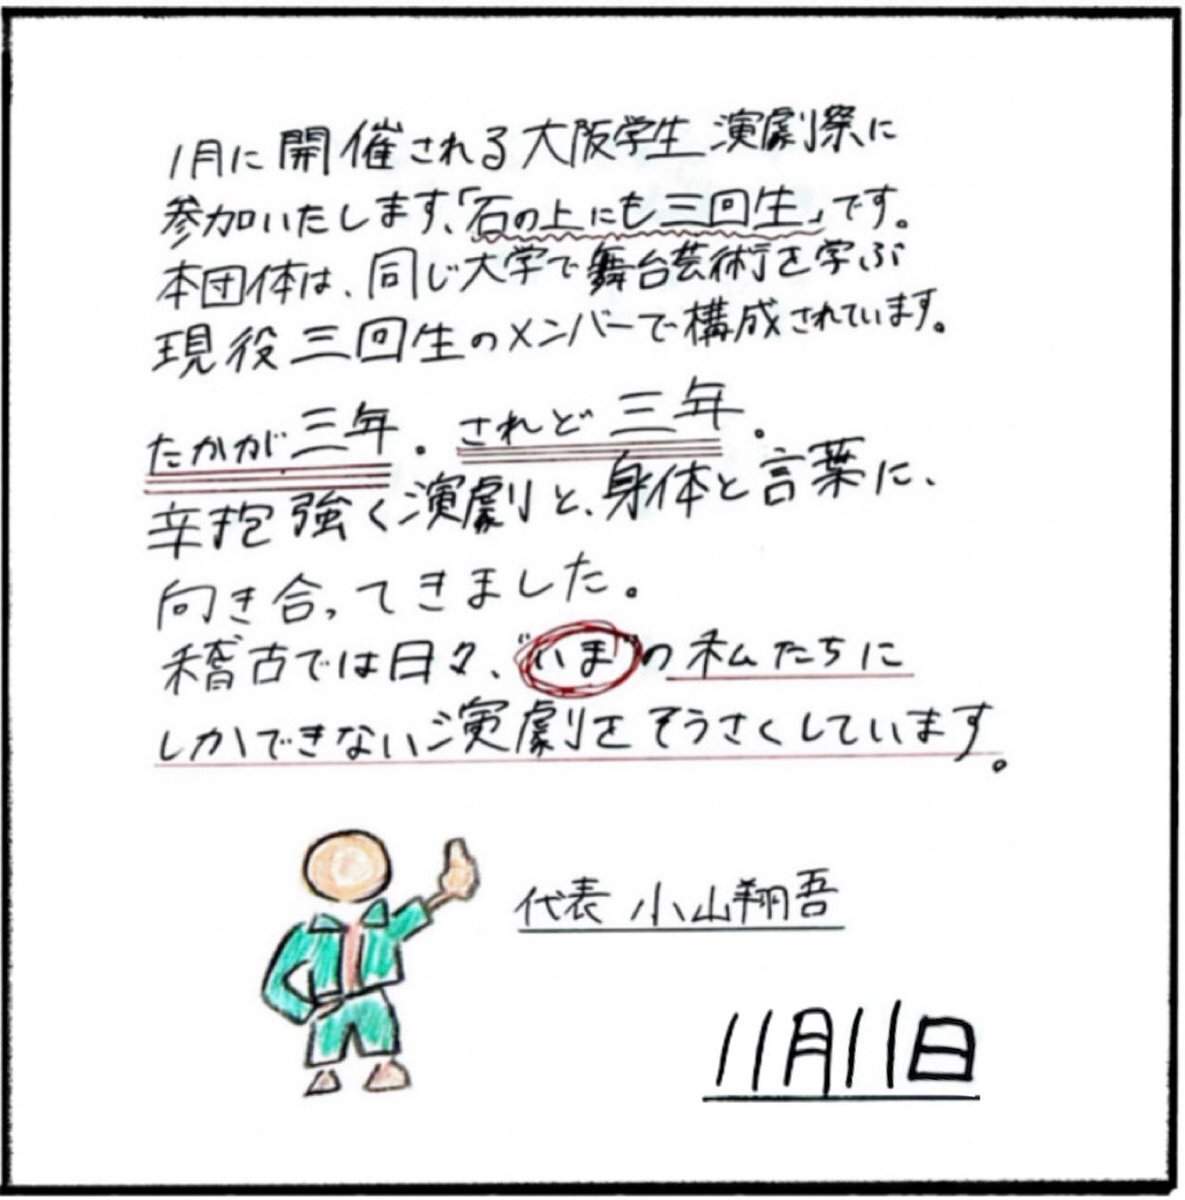 1月に開催される大阪学生演劇祭に
参加いたします、「石の上にも三回生」です。
本団体は、同じ大学で舞台芸術を学ぶ
現役三回生のメンバーで構成されています。
たかが三年。されど三年。
辛抱強く演劇と、身体と言葉に、
向き合ってきました。
稽古では日々、"いま"の私たちに
しかできない演劇をそうさくしています。
代表 小山翔吾
11月11日